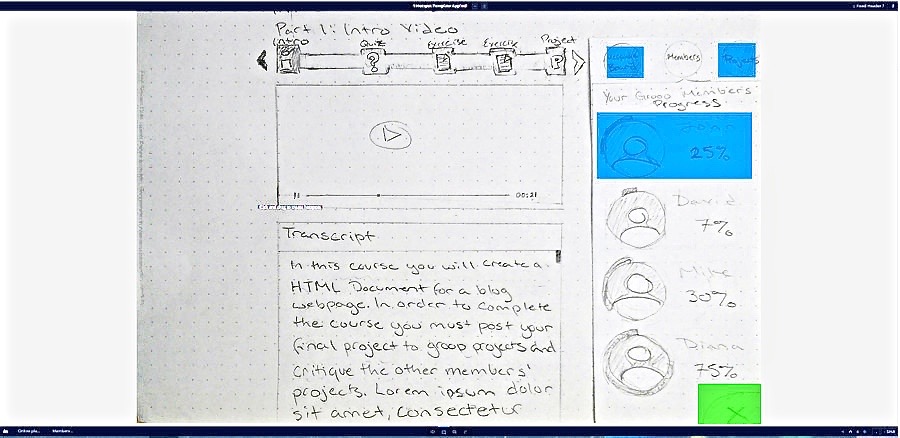 Part 1: Intro Video
Intro
Quiz
Exercise
Exercise
Project
?
P
00:21
Transcript
In this course you will create a
HTML Document for a blog
webpage. In order to complete
the course you must post your
final project to group projects and
critique the other members'
projects. Lorem ipsum dolor
sit amet, consectetur
Members
Projects
Your Group Members'
Progress
25%
David
7%
Mike
30%
Diana
75%
X
Fixed Header
Members...